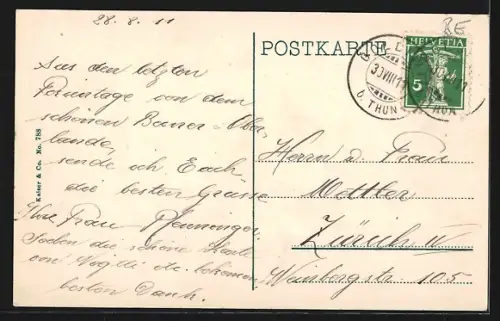 28.8.11
BE
POSTKARTE
HELVETIA
5
b. THUN
Aus den letzten
Ferientage von dem
schönen Berner-Ober-
lande,
sende ich Euch
die besten Grüsse
Frau Pfenninger.
Haben die schöne Karte
von erhalten,
besten Dank.
Kaiser & Co. No. 788
Herrn u. Frau
Mettler
Zürich IV
Weinbergstr. 105